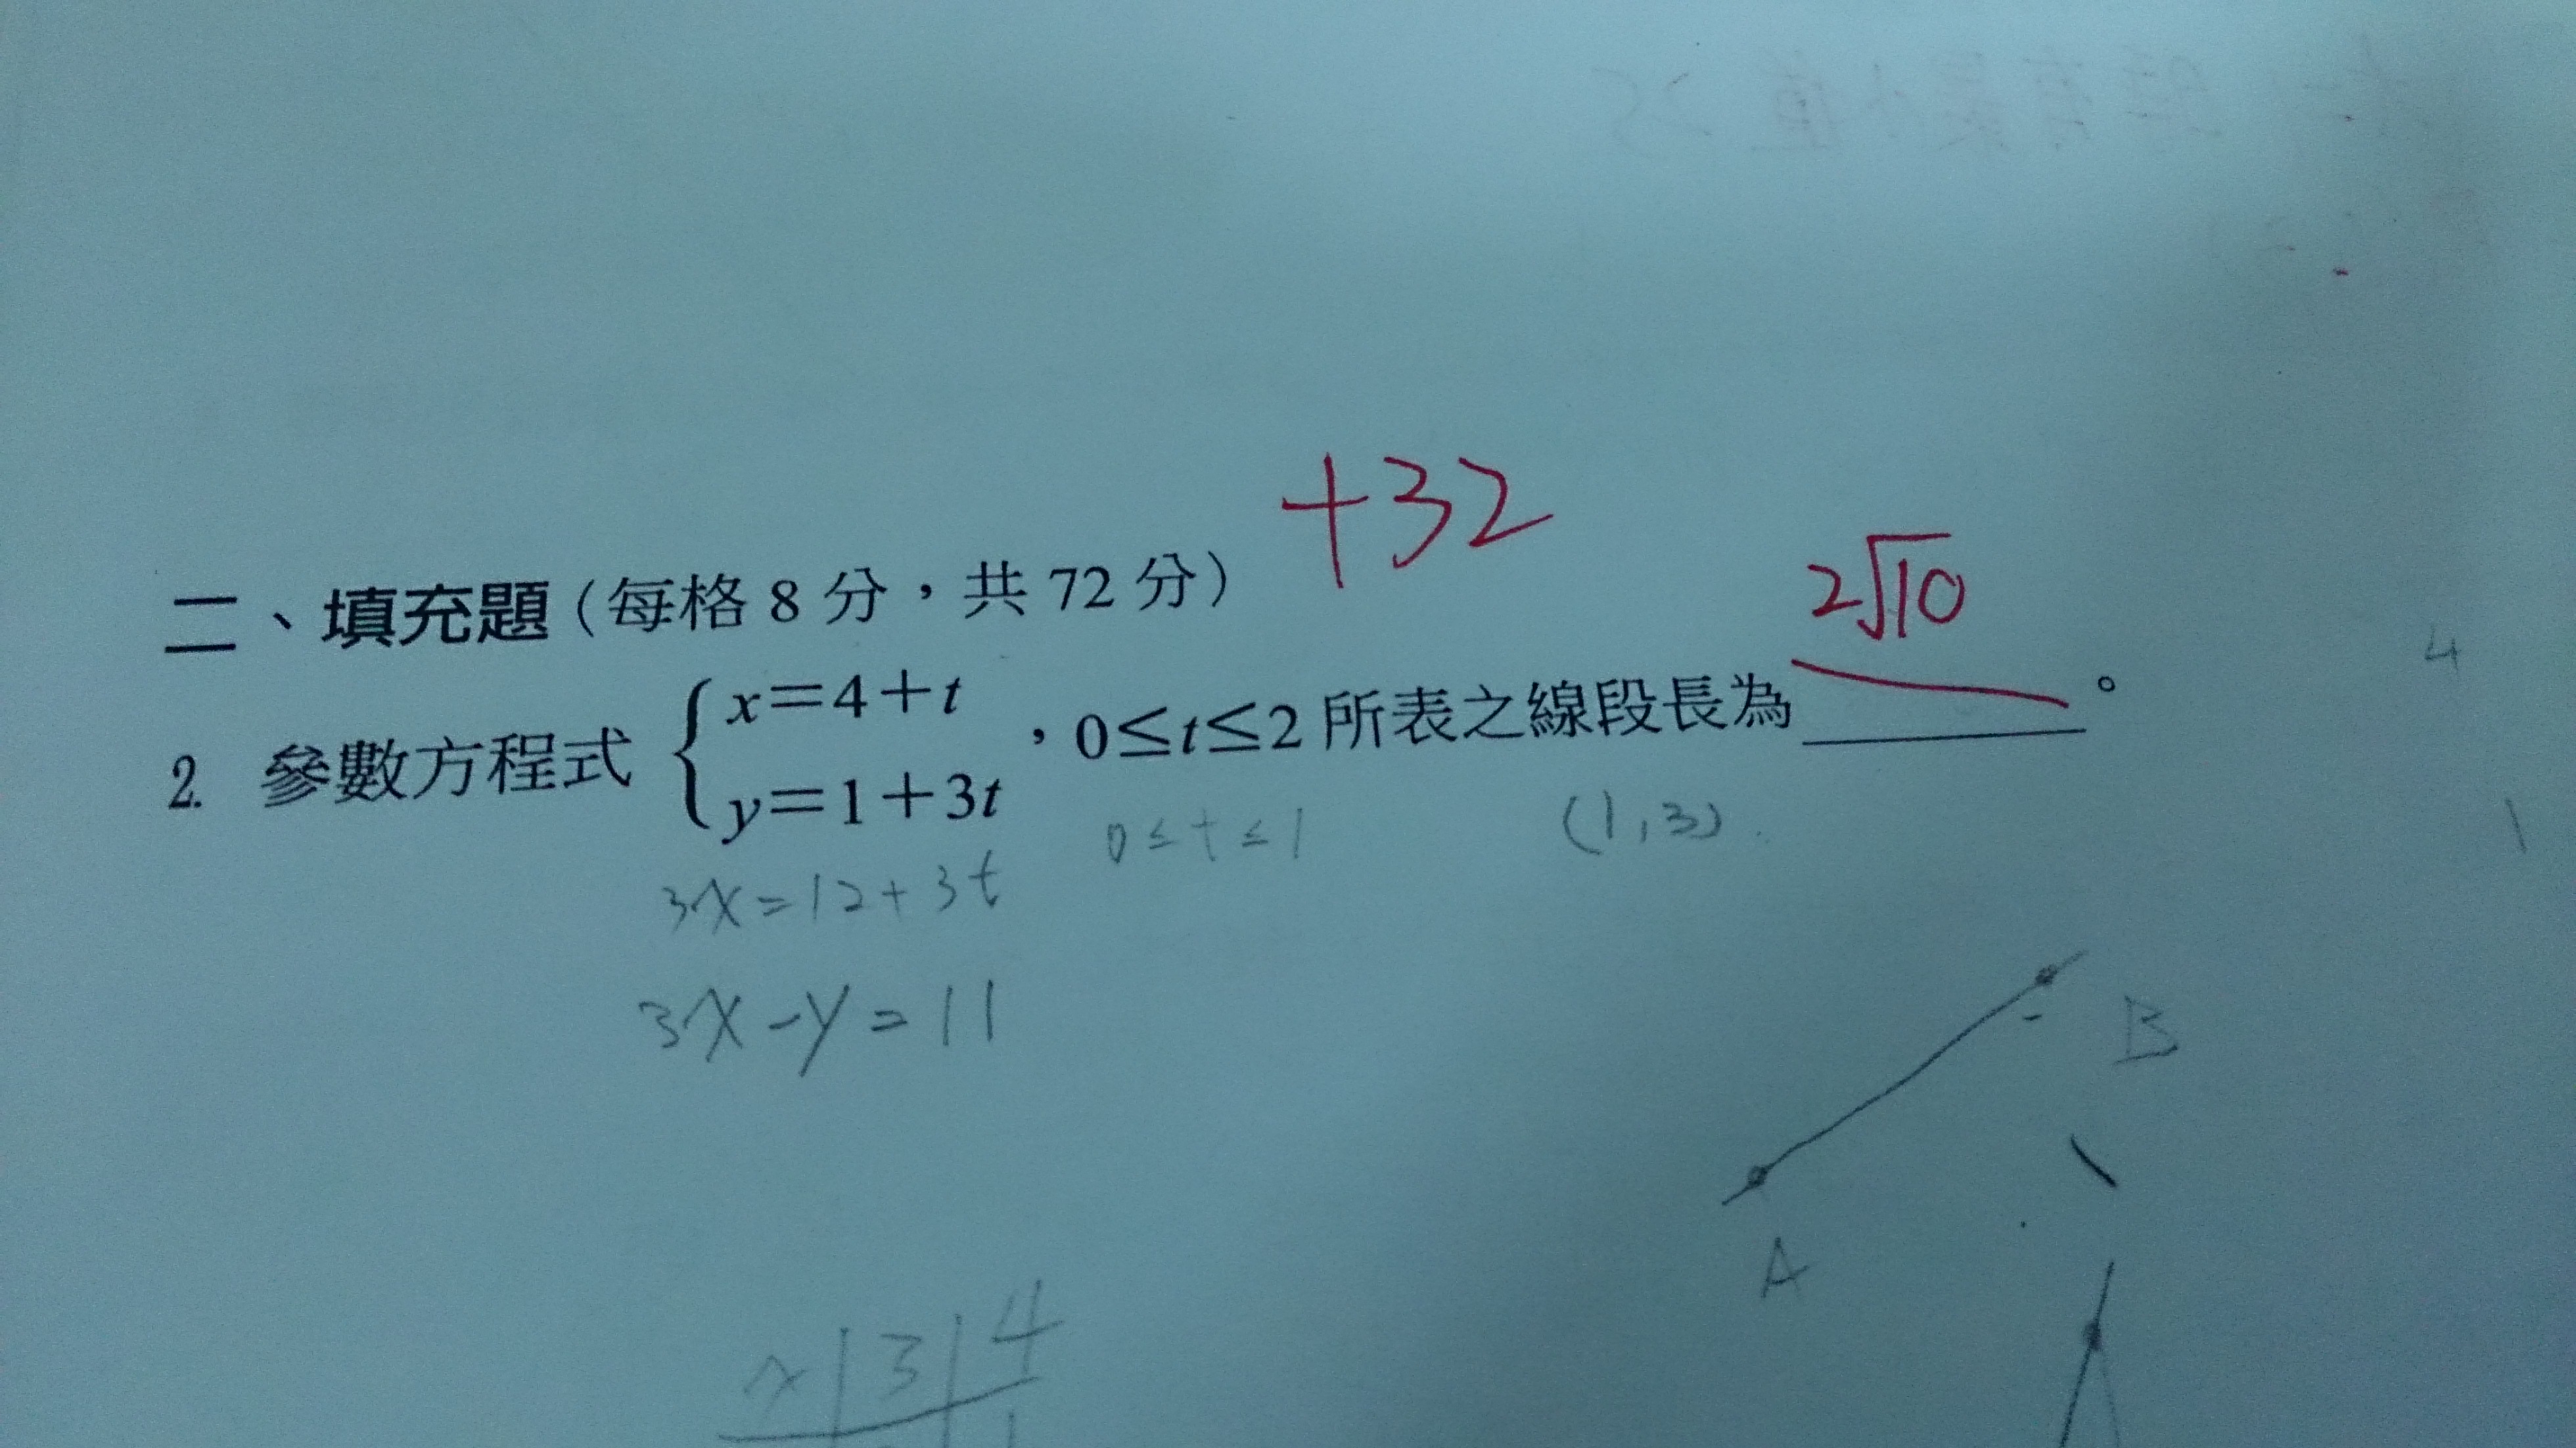 +32
二、填充題(每格 8 分，共 72 分)
2√10
2. 參數方程式 { x=4+t
y=1+3t ，0≤t≤2 所表之線段長為________。
4
0≤t≤1 (1,3)
3x=12+3t
3x-y=11
B
A
x|3|4